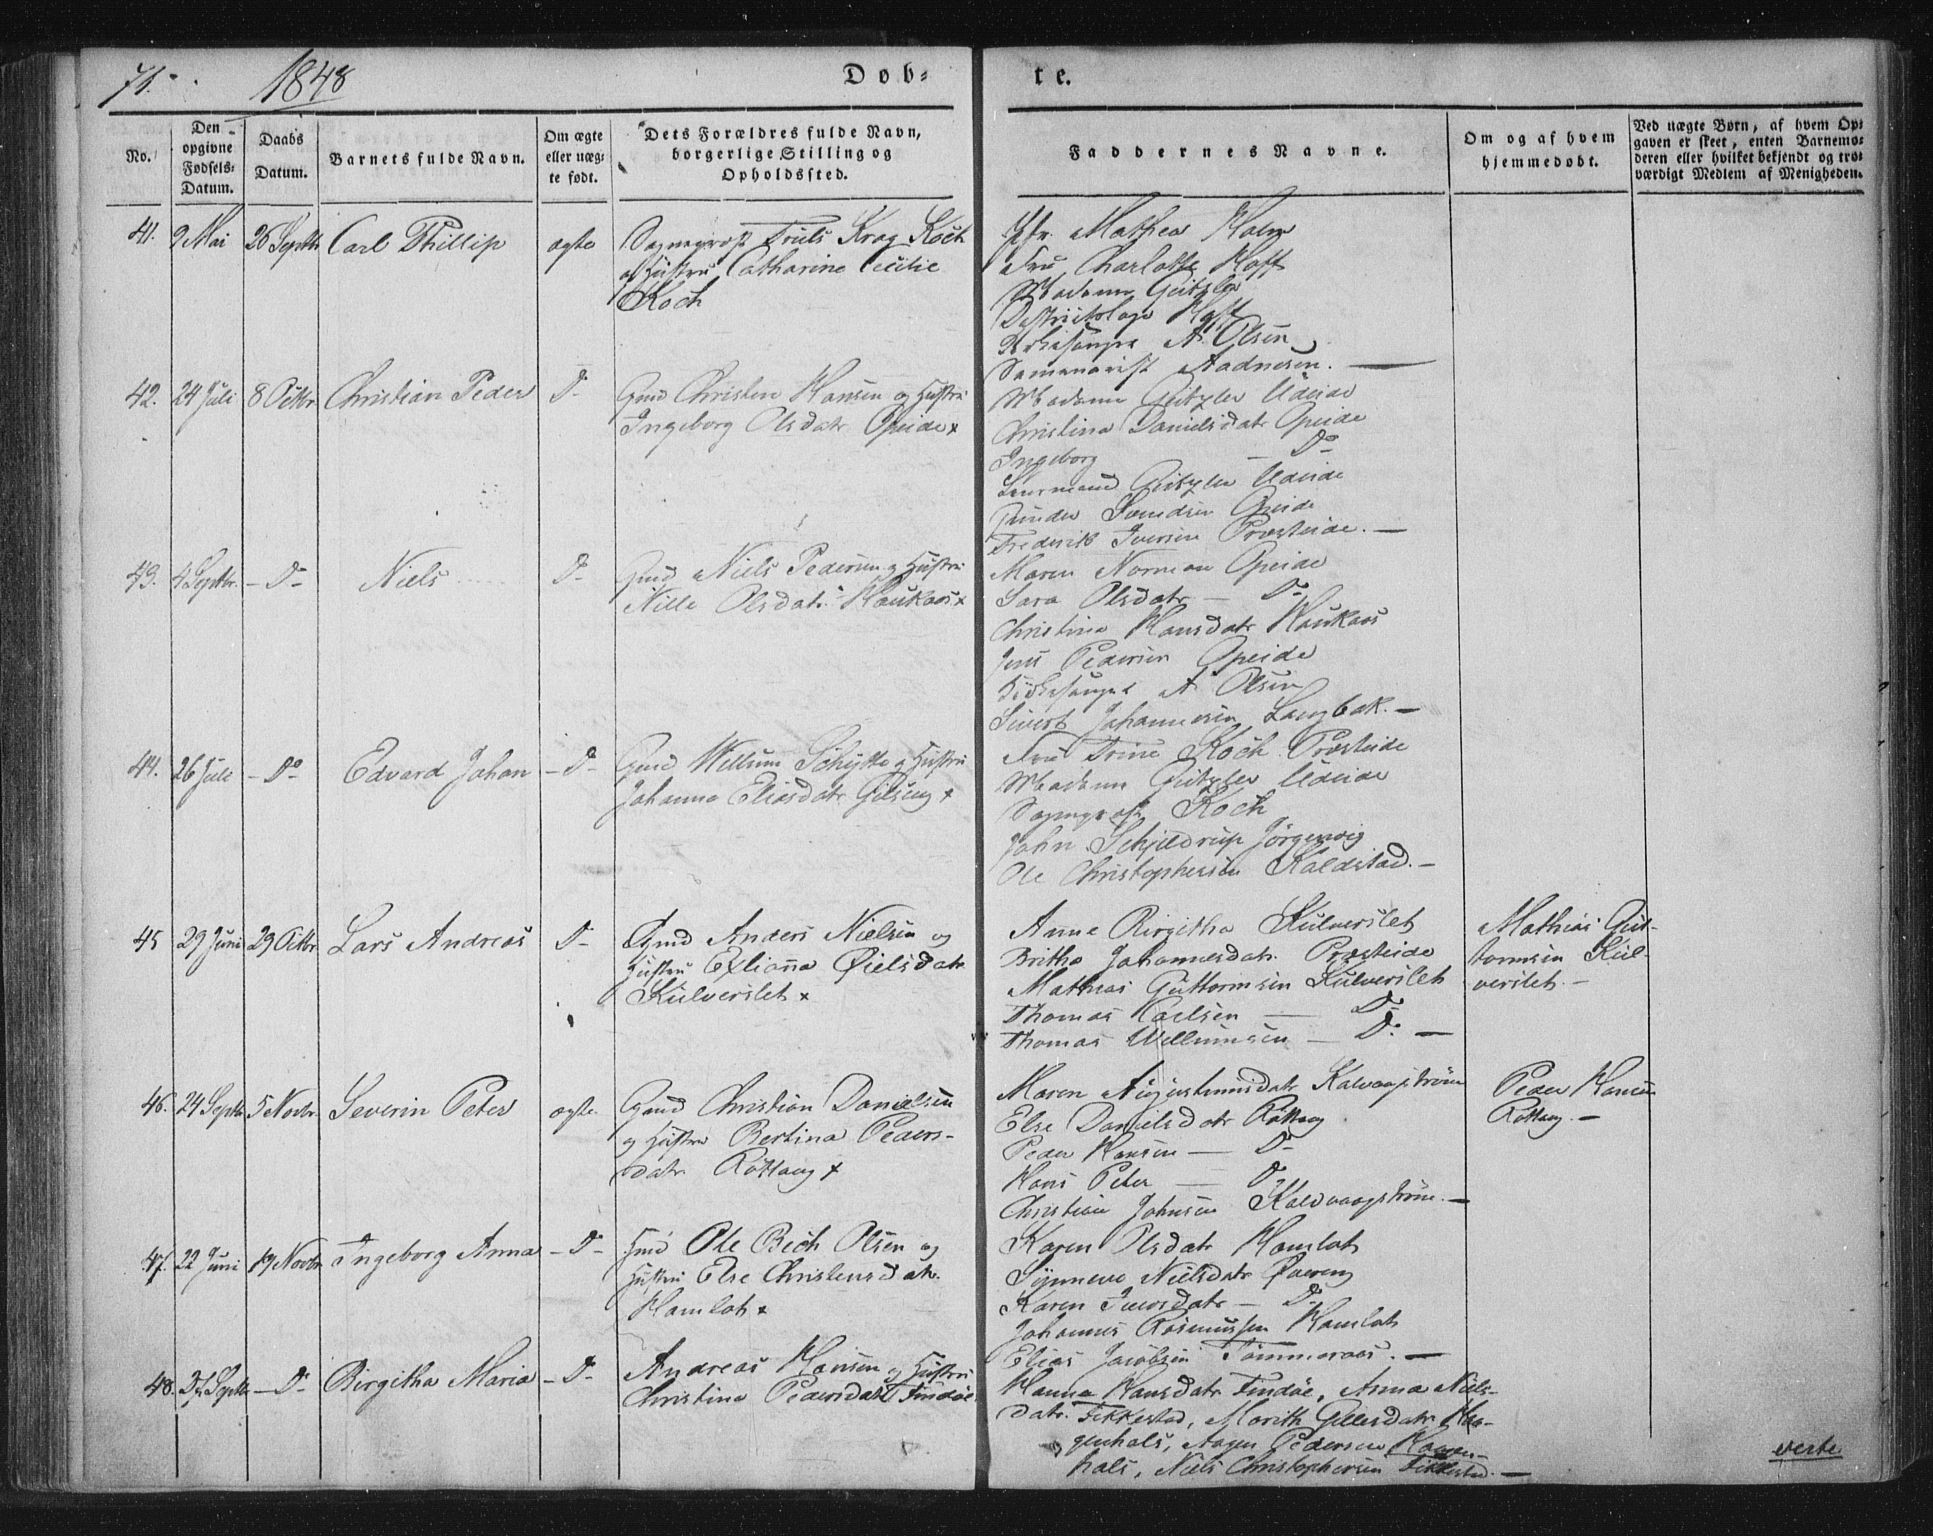 71.
1848
Døb=
te.
No.
Den opgivne Fødsels-Datum.
Daabs Datum.
Barnets fulde Navn.
Om ægte eller uægte født.
Dets Forældres fulde Navn, borgerlige Stilling og Opholdssted.
Faddernes Navne.
Om og af hvem hjemmedøbt.
Ved uægte Børn, af hvem Opgaven er skeet, enten Barnemoderen eller hvilket bekjendt og troværdigt Medlem af Menigheden.
41. 9 Mai 26 Septbr Carl Phillip ægte
Sogneprest Truls Krag Koch
og Hustru Catharine Cecilie
Koch
Jfr. Mathea Holm
Fru Charlotte Hoff
Madame Geitzler
Districtslæge Hoff
Kirkesanger A. Olsen
Seminarist Aadnesen. —
42. 24 Juli 8 Octbr Christian Peder D-
Gmd Christen Hansen og Hustru
Ingeborg Olsdatr Opeide x
Madame Geitzler Uleide
Christina Danielsdatr Opeide
Ingeborg — Do
Lensmand Geitzler Uleide
Gunder Svendsen Opeide
Frederik Iversen Præsteide. —
43. 4 Septbr. — D- Niels D-
Gmd Niels Pedersen og Hustru
Nille Olsdatr. Haukaas x
Maren Norman Opeide
Sara Olsdatr — D-
Christina Hansdatr Haukaas
Jens Pedersen Opeide
Kirkesanger A. Olsen
Sivert Johannesen Langbak. —
44. 26 Juli — Do Edvard Johan — D-
Gmd Wellum Schytte og Hustru
Johanna Eliasdatr x
Fru Trine Koch Præsteide
Madame Geitzler Uleide
Sogneprest Koch
John Schjeldrup Jørgenvig
Ole Christophersen Kaldstad. —
45 29 Juni 29 Octbr Lars Andreas D-
Gmd Anders Nielsen og
Hustru Exlianna Øielsdatr
Kulverslet x
Anne Birgitha Kulverslet
Britha Johannesdatr. Præsteide
Mathias Guttormsen Kulverslet
Thomas Carlsen — D-
Thomas Wellumsen — D. —
Mathias Gut-
tormsen Kul-
verslet. —
46. 24 Septbr 5 Novbr Severin Peter ægte
Gmd Christian Danielsen
og Hustru Bertina Peders-
datr Røttang x
Maren Augustinusdatr Kalvaagstrøm
Else Danielsdatr Røttang
Peder Hansen — D-
Hans Peter — D.
Christian Johnsen Kalvaagstrøm. —
Peder Hansen
Røttang. —
47. 22 Juni 19 Novbr Ingeborg Anna — D-
Hmd Ole Bech Olsen og
Hustru Else Christensdatr.
Hamlot x
Karen Olsdatr Hamlot
Synneve Nielsdatr
Karen Iversdatr — D-
Johannes Rasmussen Hamlot
Elias Jacobsen Tømmeraas. —
48. 27 Septbr — D- Birgitha Maria — D-
Andreas Hansen og Hustru
Christina Pedersdatr Findøe
Hanna Hansdatr Findøe, Anna Niels-
datr. Fikkestad, Marith Gullesdatr Haa-
genhals, Aagen Pedersen Haagen-
hals, Niels Christophersen Fikkestad. —
verte